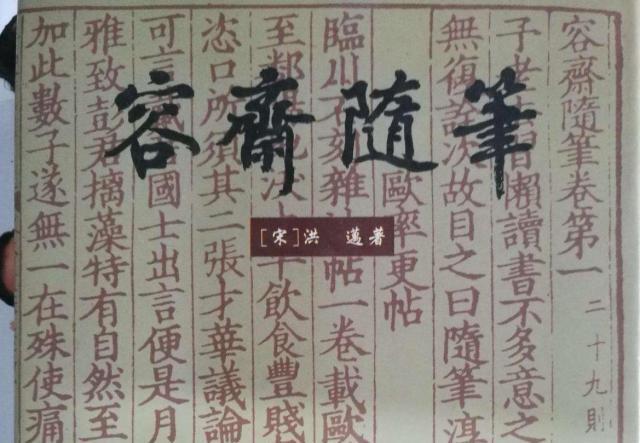 容齋隨筆
[宋]洪 邁著
容齋隨筆卷第一 二十九則
子老 習懶讀書不多意之
無復詮次故目之曰隨筆淳
歐率更帖
臨川石刻雜 帖一卷載歐
至鄱 地沃土平飲食豐賤
恣口所須其二張才華議論
可言 國士出言便是月
雅致彭君摛藻特有自然至
如此數子遂無一在殊使痛